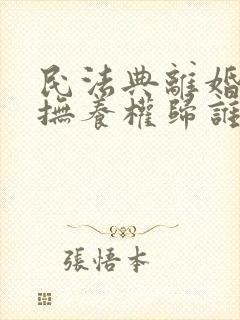 民法典離婚
撫養權歸誰
張悟本